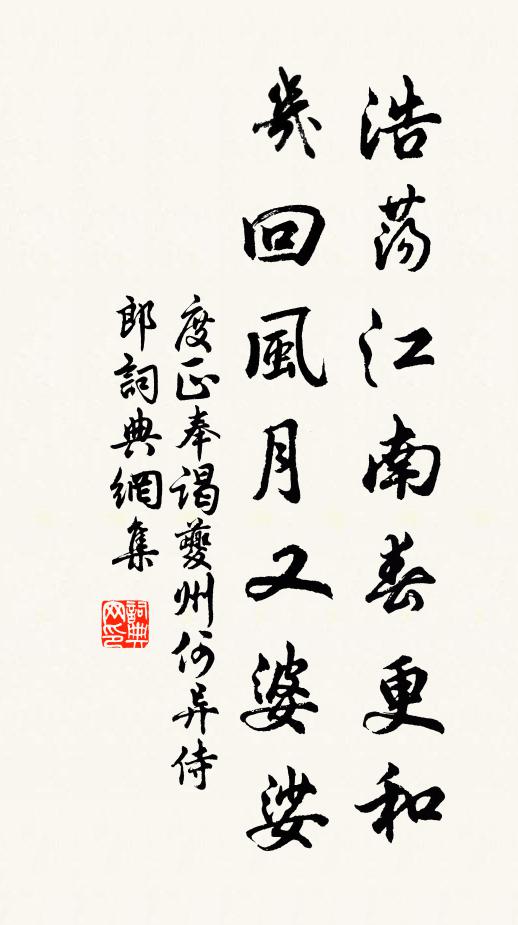 浩荡江南春更和
幾回風月又婆娑
度正奉謁夔州何异侍
郎詞典網集
詞典网印